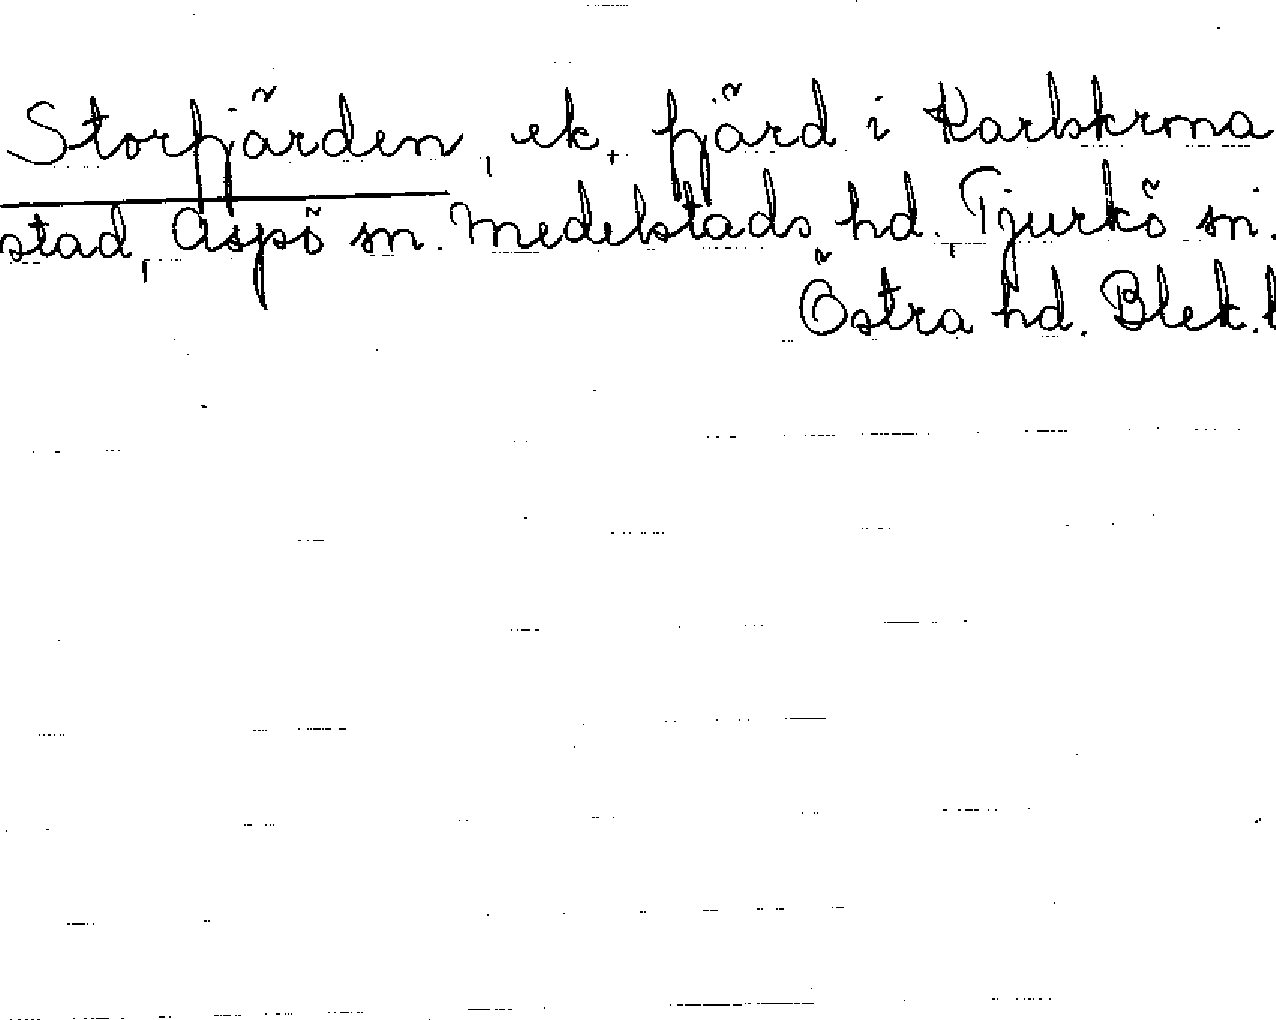 Storfjärden, ek., fjärd i Karlskrona
stad, Aspö sn. Medelstads hd., Tjurkö sn.
Östra hd. Blek. l